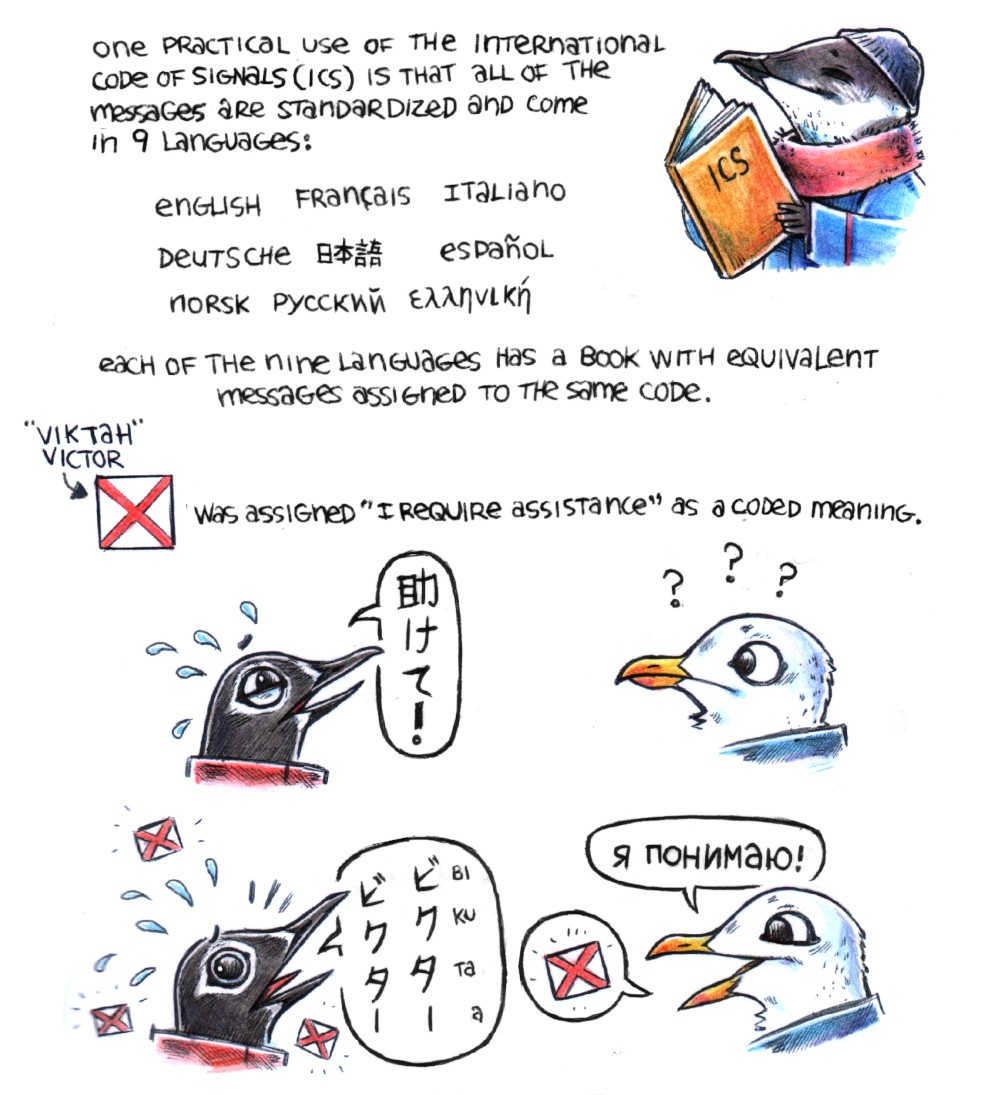 one PRACTICAL USE OF THE INTERNATIONAL
CODE OF SIGNALS (ICS) IS THAT ALL OF THE
messages are STANDARDIZED and come
in 9 Languages:
ICS
enGLISH Français ITaLiano
DEUTSCHE 日本語 español
norsk русский ελληνική
each of THE nine Languages has a Book WITH equivalent
messages assigned to the same code.
"VIKTAH"
VICTOR
was assigned "I require assistance" as a coded meaning.
助けて!
? ? ?
ビクター
ビクター
BI
KU
Ta
a
Я ПОНИМАЮ!